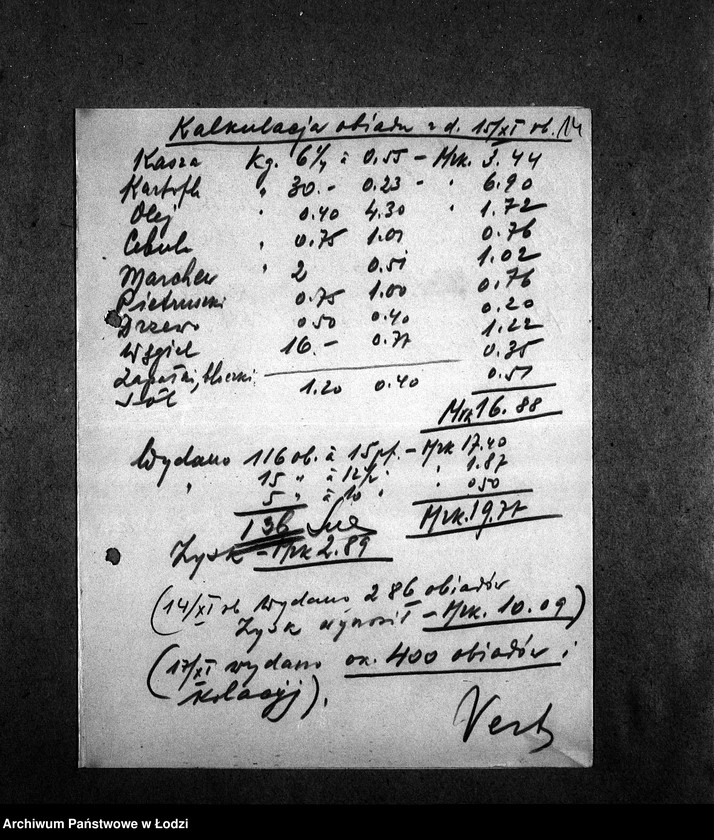 Kalkulacja obiadu z d. 15/XI rb. 14
Kasza kg. 6¼ à 0.55 – Mrk. 3.44
Kartofle " 30.- 0.23 - " 6.90
Olej " 0.40 4.30 " 1.72
Cebula " 0.75 1.01 0.76
Marchew " 2 0.51 1.02
Pietruszki 0.75 1.00 0.76
Drzewo 0.50 0.40 0.20
Węgiel 16.- 0.77 1.22
Zapałki, 0.35
Sól 1.20 0.40 0.51
Mrk 16.88
Wydano 116 ob. à 15 pf. – Mrk 17.40
" 15 " à 12½ " 1.87
5 " à 10 " " 0.50
136 Mrk. 19.77
Zysk – Mrk 2.89
(14/XI rb wydano 286 obiadów
Zysk wynosił – Mrk. 10.09)
(17/XI wydano ok. 400 obiadów i
kolacyj).
Archiwum Państwowe w Łodzi